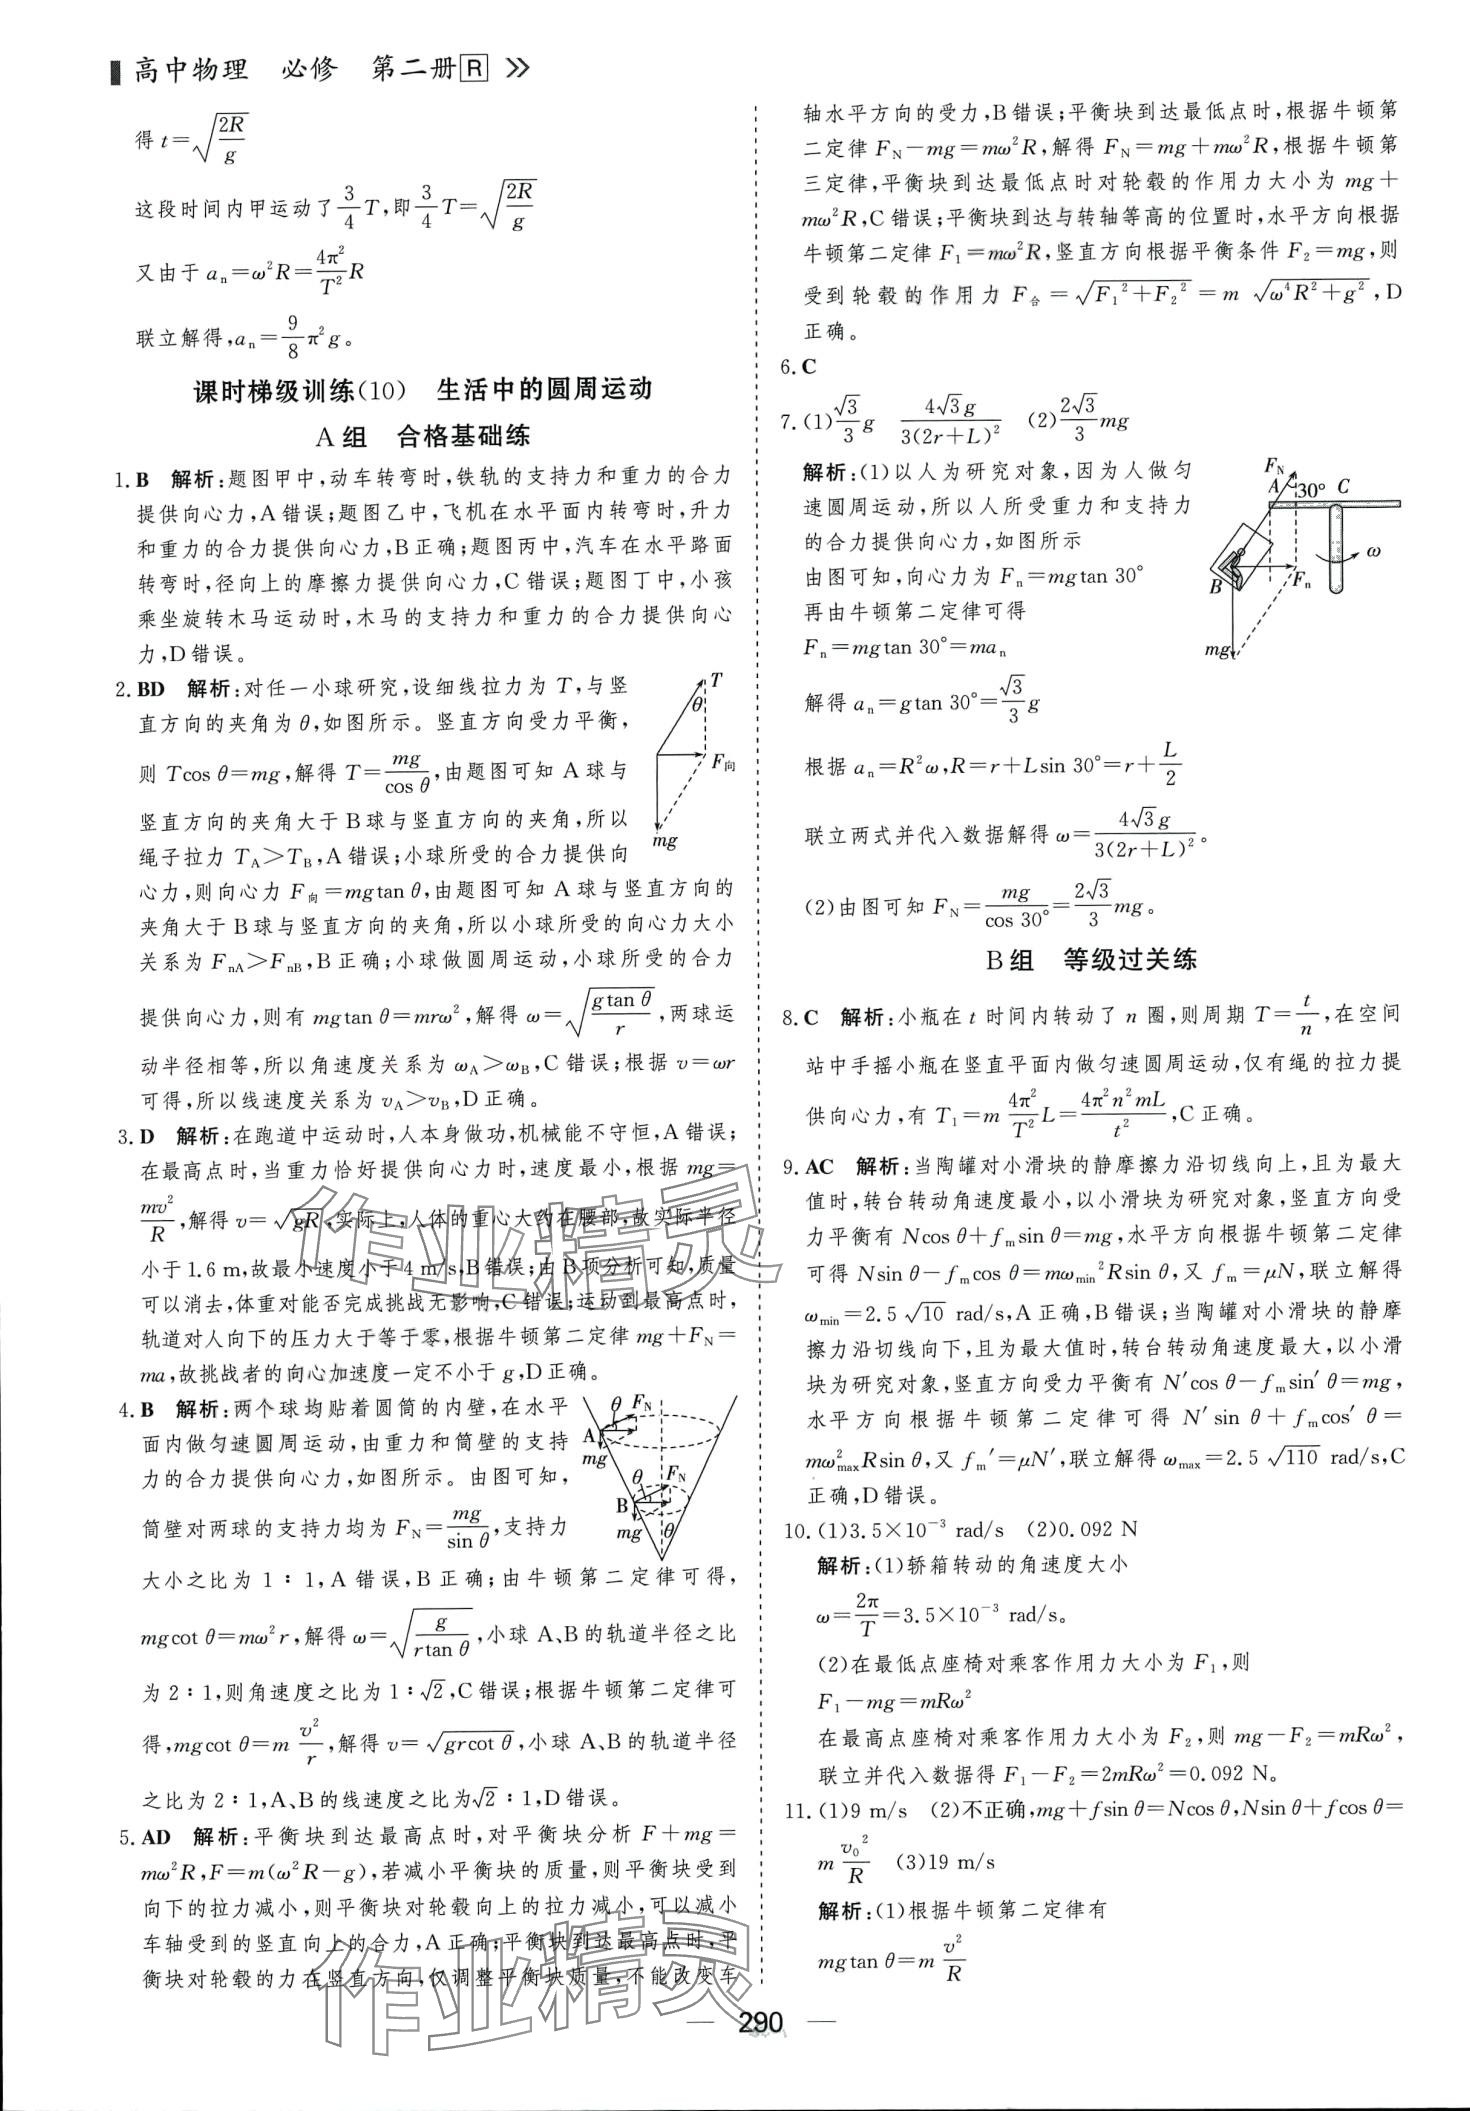 高中物理　必修　第二册 R »
得 t=√(2R/g)
这段时间内甲运动了 3/4 T,即 3/4 T=√(2R/g)
又由于 aₙ=ω²R=4π²/T² R
联立解得,aₙ=9/8 π²g。
课时梯级训练(10)　生活中的圆周运动
A 组　合格基础练
1. B　解析:题图甲中,动车转弯时,铁轨的支持力和重力的合力
提供向心力,A错误;题图乙中,飞机在水平面内转弯时,升力
和重力的合力提供向心力,B正确;题图丙中,汽车在水平路面
转弯时,径向上的摩擦力提供向心力,C错误;题图丁中,小孩
乘坐旋转木马运动时,木马的支持力和重力的合力提供向心
力,D错误。
2. BD　解析:对任一小球研究,设细线拉力为 T,与竖
直方向的夹角为 θ,如图所示。竖直方向受力平衡,
则 Tcos θ=mg,解得 T=mg/cos θ,由题图可知 A 球与
竖直方向的夹角大于 B 球与竖直方向的夹角,所以
绳子拉力 T_A>T_B,A 错误;小球所受的合力提供向
心力,则向心力 F向=mgtan θ,由题图可知 A 球与竖直方向的
夹角大于 B 球与竖直方向的夹角,所以小球所受的向心力大小
关系为 F_nA>F_nB,B 正确;小球做圆周运动,小球所受的合力
提供向心力,则有 mgtan θ=mrω²,解得 ω=√(gtan θ/r),两球运
动半径相等,所以角速度关系为 ω_A>ω_B,C 错误;根据 v=ωr
可得,所以线速度关系为 v_A>v_B,D 正确。
T
θ
F向
mg
3. D　解析:在跑道中运动时,人本身做功,机械能不守恒,A 错误;
在最高点时,当重力恰好提供向心力时,速度最小,根据 mg=
mv²/R,解得 v=√gR,实际上,人体的重心大约在腰部,故实际半径
小于1.6 m,故最小速度小于4 m/s,B错误;由B项分析可知,质量
可以消去,体重对能否完成挑战无影响,C错误;运动到最高点时,
轨道对人向下的压力大于等于零,根据牛顿第二定律 mg+F_N=
ma,故挑战者的向心加速度一定不小于 g,D正确。
4. B　解析:两个球均贴着圆筒的内壁,在水平
面内做匀速圆周运动,由重力和筒壁的支持
力的合力提供向心力,如图所示。由图可知,
筒壁对两球的支持力均为 F_N=mg/sin θ,支持力
大小之比为 1∶1,A 错误,B 正确;由牛顿第二定律可得,
mgcot θ=mω²r,解得 ω=√(g/(rtan θ)),小球 A、B 的轨道半径之比
为 2∶1,则角速度之比为 1∶√2,C 错误;根据牛顿第二定律可
得,mgcot θ=m v²/r,解得 v=√(grcot θ),小球 A、B 的轨道半径
之比为 2∶1,A、B 的线速度之比为√2∶1,D 错误。
θ F_N
A
mg
θ F_N
B
mg θ
5. AD　解析:平衡块到达最高点时,对平衡块分析 F+mg=
mω²R,F=m(ω²R-g),若减小平衡块的质量,则平衡块受到
向下的拉力减小,则平衡块对轮毂向上的拉力减小,可以减小
车轴受到的竖直向上的合力,A正确;平衡块到达最高点时,平
衡块对轮毂的力在竖直方向,仅调整平衡块质量,不能改变车
轴水平方向的受力,B错误;平衡块到达最低点时,根据牛顿第
二定律 F_N-mg=mω²R,解得 F_N=mg+mω²R,根据牛顿第
三定律,平衡块到达最低点时对轮毂的作用力大小为 mg+
mω²R,C错误;平衡块到达与转轴等高的位置时,水平方向根据
牛顿第二定律 F₁=mω²R,竖直方向根据平衡条件 F₂=mg,则
受到轮毂的作用力 F合=√(F₁²+F₂²)=m √(ω⁴R²+g²),D
正确。
6. C
7. (1) √3/3 g　4√3g/3(2r+L)²　(2) 2√3/3 mg
解析:(1)以人为研究对象,因为人做匀
速圆周运动,所以人所受重力和支持力
的合力提供向心力,如图所示
由图可知,向心力为 Fₙ=mgtan 30°
再由牛顿第二定律可得
Fₙ=mgtan 30°=maₙ
解得 aₙ=gtan 30°=√3/3 g
根据 aₙ=R²ω,R=r+Lsin 30°=r+L/2
联立两式并代入数据解得 ω=4√3g/3(2r+L)²。
(2)由图可知 F_N=mg/cos 30°=2√3/3 mg。
F_N
A 30° C
ω
B Fₙ
mg
B 组　等级过关练
8. C　解析:小瓶在 t 时间内转动了 n 圈,则周期 T=t/n,在空间
站中手摇小瓶在竖直平面内做匀速圆周运动,仅有绳的拉力提
供向心力,有 T₁=m 4π²/T² L=4π²n²mL/t²,C 正确。
9. AC　解析:当陶罐对小滑块的静摩擦力沿切线向上,且为最大
值时,转台转动角速度最小,以小滑块为研究对象,竖直方向受
力平衡有 Ncos θ+fₘsin θ=mg,水平方向根据牛顿第二定律
可得 Nsin θ-fₘcos θ=mω_min²Rsin θ,又 fₘ=μN,联立解得
ω_min=2.5 √10 rad/s,A 正确,B 错误;当陶罐对小滑块的静摩
擦力沿切线向下,且为最大值时,转台转动角速度最大,以小滑
块为研究对象,竖直方向受力平衡有 N′cos θ-fₘsin′ θ=mg,
水平方向根据牛顿第二定律可得 N′sin θ+fₘcos′ θ=
mω²_max Rsin θ,又 fₘ′=μN′,联立解得 ω_max=2.5 √110 rad/s,C
正确,D 错误。
10. (1)3.5×10⁻³ rad/s　(2)0.092 N
解析:(1)轿箱转动的角速度大小
ω=2π/T=3.5×10⁻³ rad/s。
(2)在最低点座椅对乘客作用力大小为 F₁,则
F₁-mg=mRω²
在最高点座椅对乘客作用力大小为 F₂,则 mg-F₂=mRω²,
联立并代入数据得 F₁-F₂=2mRω²=0.092 N。
11. (1)9 m/s　(2)不正确,mg+fsin θ=Ncos θ,Nsin θ+fcos θ=
m v₀²/R　(3)19 m/s
解析:(1)根据牛顿第二定律有
mgtan θ=m v²/R
290
作业精灵
作业精灵